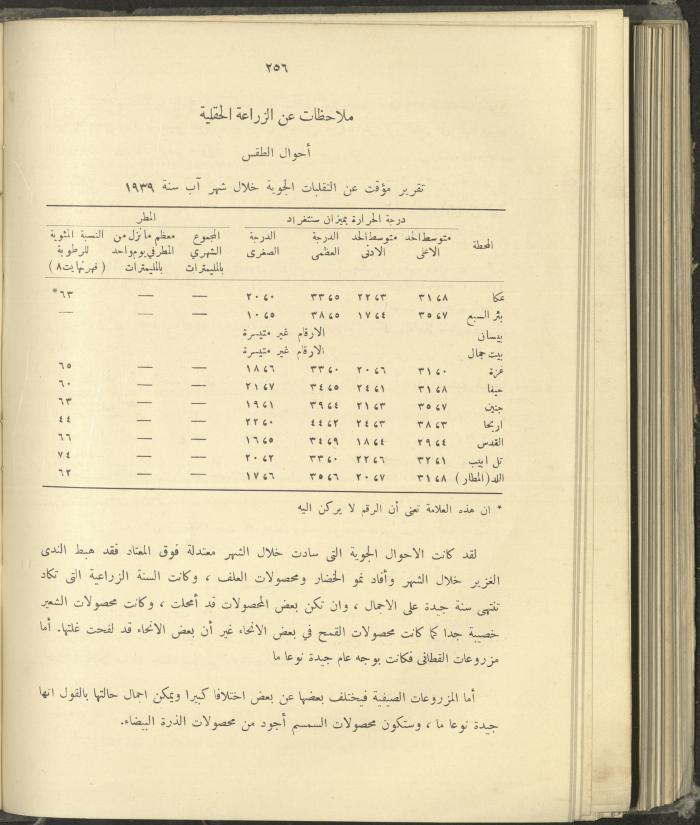 ٢٥٦
ملاحظات عن الزراعة الحقلية
أحوال الطقس
تقرير مؤقت عن التقلبات الجوية خلال شهر آب سنة ١٩٣٩
درجة الحرارة بميزان سنتغراد المطر
المحطة متوسط الحد الاعلى متوسط الحد الادنى الدرجة العظمى الدرجة الصغرى المجموع الشهري بالمليمترات معظم ما نزل من المطر في يوم واحد بالمليمترات النسبة المئوية للرطوبة (فهرنهايت ٨)
عكا ٣١،٨ ٢٢،٣ ٣٣،٥ ٢٠،٠ — — ٦٣*
بئر السبع ٣٥،٧ ١٧،٤ ٣٨،٥ ١٠،٥ — — —
بيسان الارقام غير متيسرة
بيت جمال الارقام غير متيسرة
غزة ٣١،٠ ٢٠،٦ ٣٣،٠ ١٨،٦ — — ٦٥
حيفا ٣١،٨ ٢٤،١ ٣٤،٥ ٢١،٧ — — ٦٠
جنين ٣٥،٧ ٢١،٣ ٣٩،٤ ١٩،١ — — ٦٣
اريحا ٣٨،٣ ٢٤،٣ ٤٤،٢ ٢٢،٠ — — ٤٤
القدس ٢٩،٤ ١٨،٤ ٣٤،٩ ١٦،٥ — — ٦٦
تل ابيب ٣٢،١ ٢٢،٦ ٣٣،٠ ٢٠،٢ — — ٧٤
اللد (المطار) ٣١،٨ ٢٠،٧ ٣٥،٦ ١٧،٦ — — ٦٢
* ان هذه العلامة تعنى أن الرقم لا يركن اليه
لقد كانت الاحوال الجوية التى سادت خلال الشهر معتدلة فوق المعتاد فقد هبط الندى
الغزير خلال الشهر وأفاد نمو الخضار ومحصولات العلف ، وكانت السنة الزراعية التى تكاد
تنتهى سنة جيدة على الاجمال ، وان تكن بعض المحصولات قد أمحلت ، وكانت محصولات الشعير
خصيبة جدا كما كانت محصولات القمح في بعض الانحاء غير أن بعض الانحاء قد لفحت غلتها. أما
مزروعات القطانى فكانت بوجه عام جيدة نوعا ما
أما المزروعات الصيفية فيختلف بعضها عن بعض اختلافا كبيرا ويمكن اجمال حالتها بالقول انها
جيدة نوعا ما ، وستكون محصولات السمسم أجود من محصولات الذرة البيضاء.